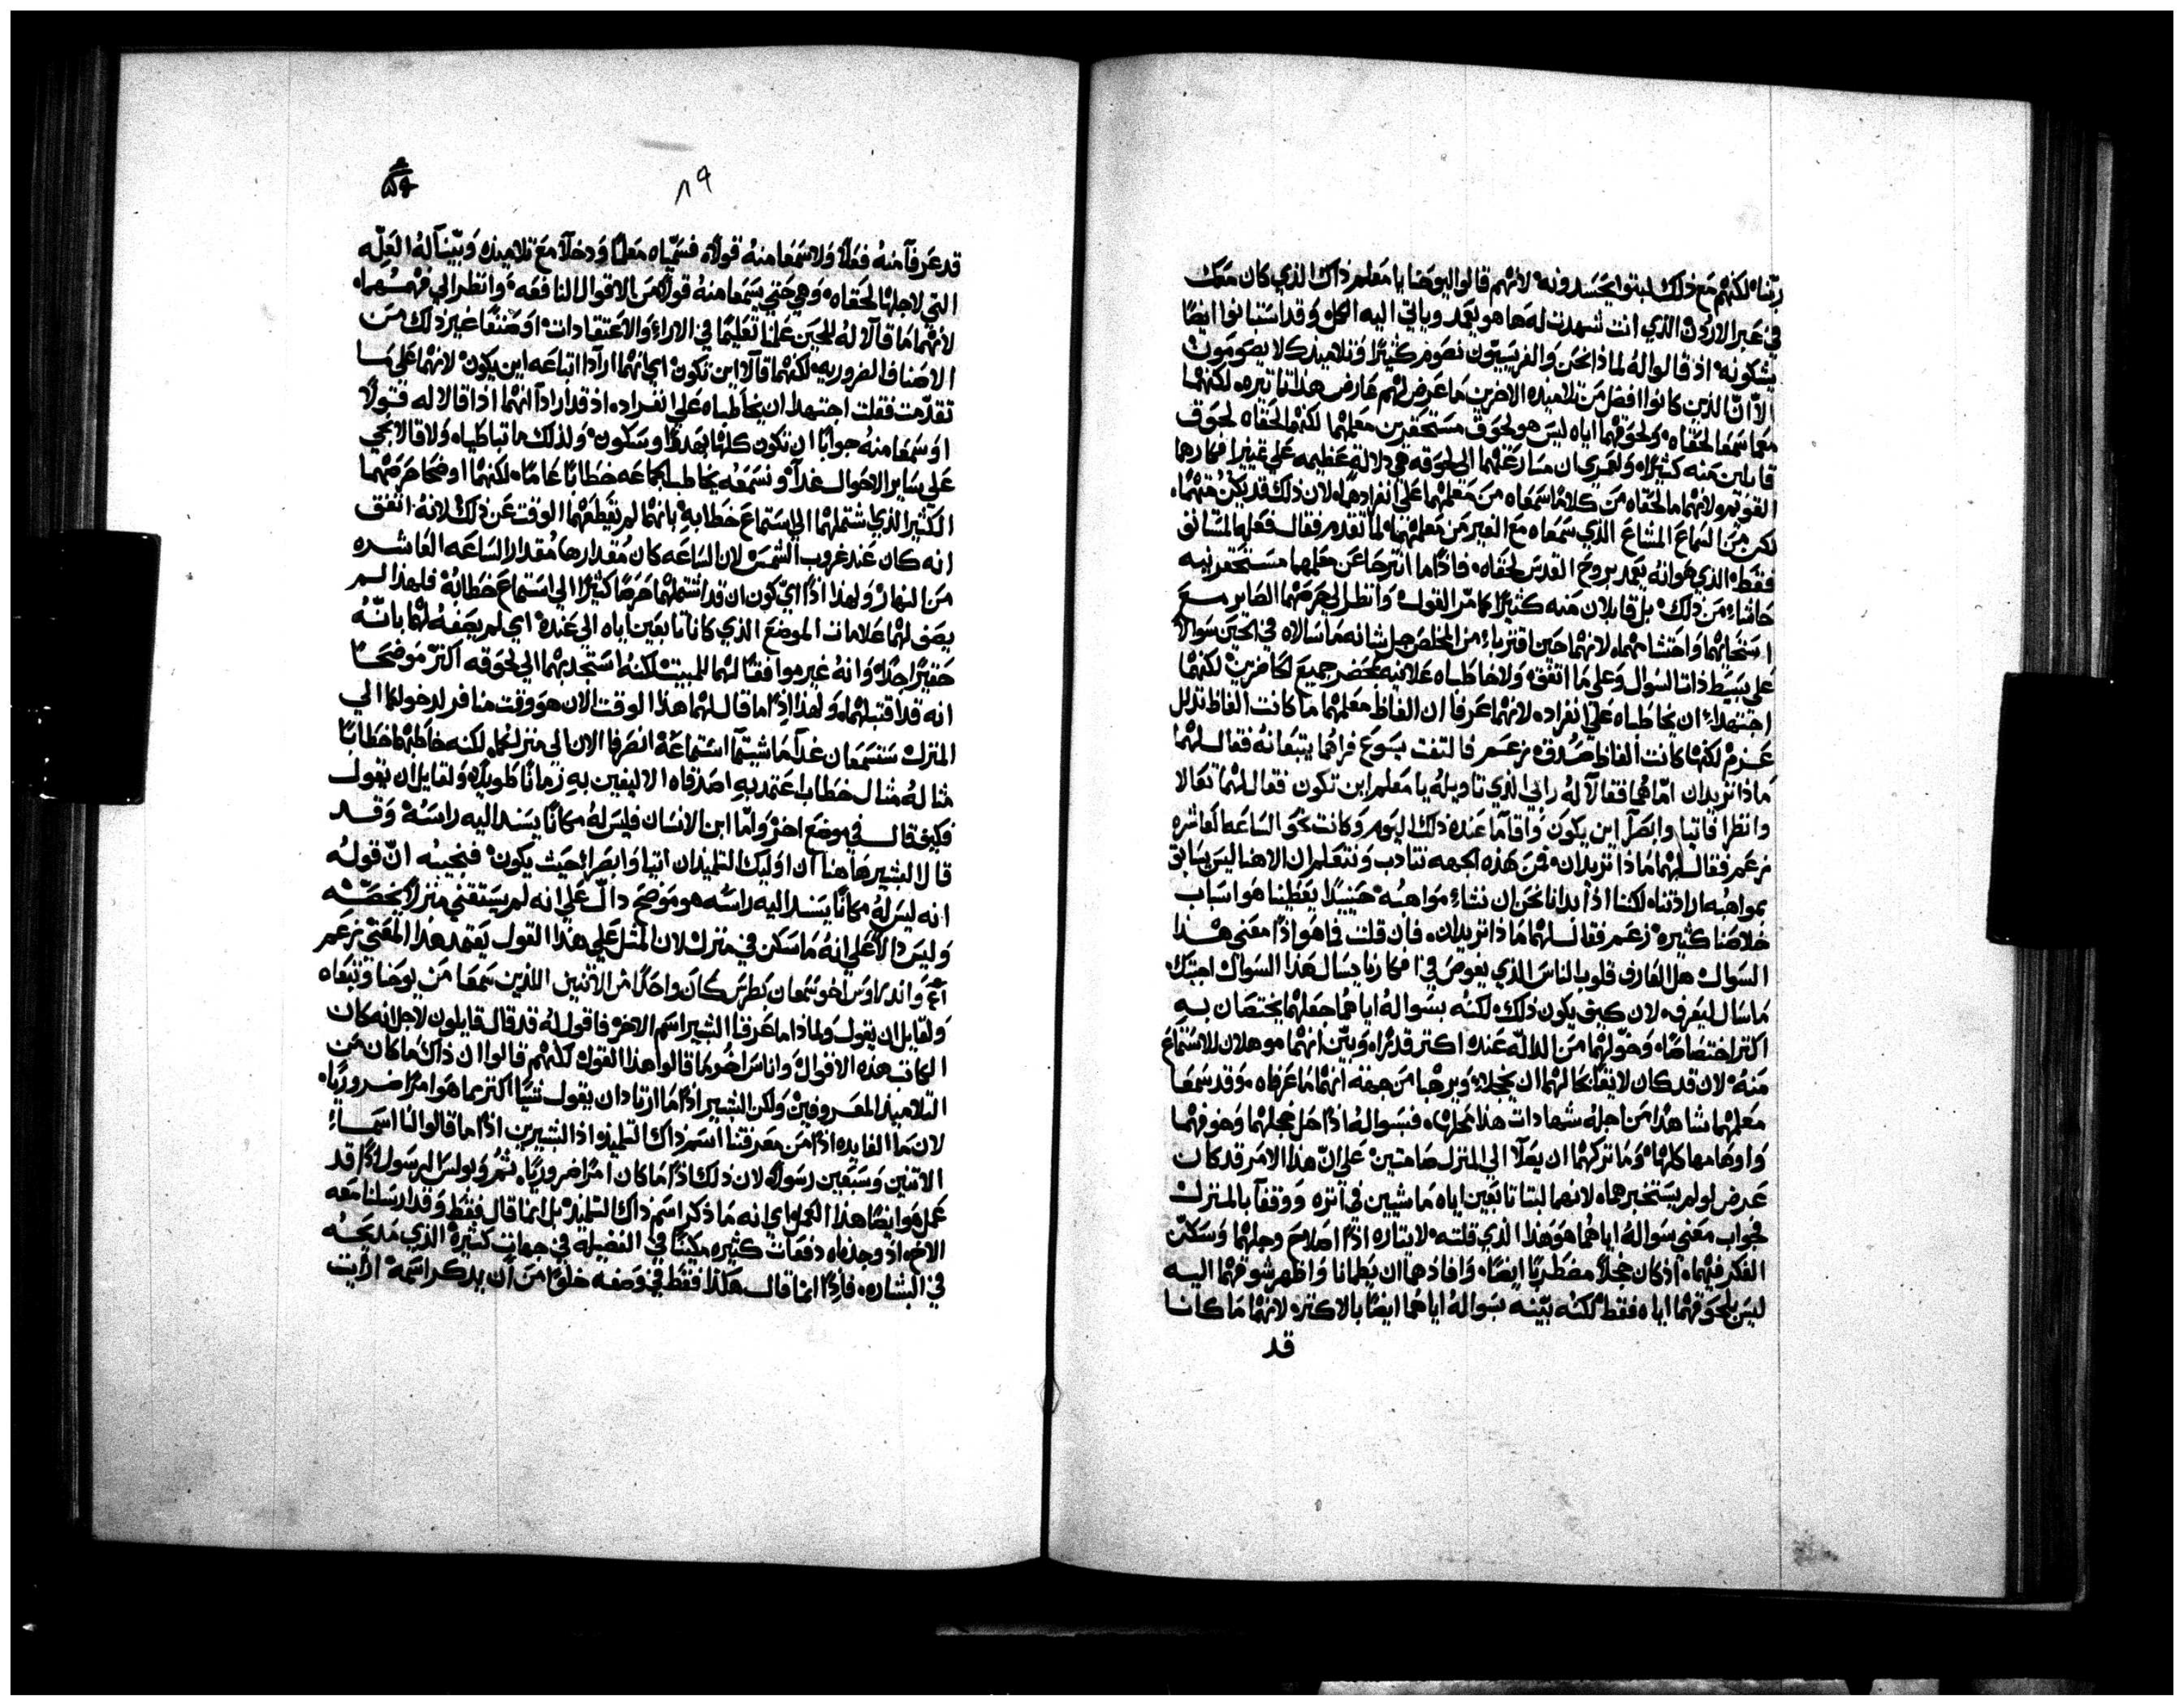 ربّنا. لكنهم مع ذلك لبتوا يحسدونه لانهم قالوا ليوحنا يا معلم ذاك الذي كان معك
في عبر الاردن الذي انت شهدت له ها هو يعمد وياتي اليه الكل وقد استبانوا ايضًا
يشكونه اذ قالوا له لماذا نحن والفريسيون نصوم كثيرًا وتلاميذك لا يصومون
الا ان الذين كانوا افضل من تلاميذه الاخرين ما عرض لهم عارض هذا تاتيره لكنهما
معما سمعا لحقاه ولحوقهما اياه ليس هو لحوق مستحقرين معلمهما لكنهما لحقاه لحوق
قابلين منه كثيرًا ولعمري ان مسارعتهما الي لحوقه هي دلالة عظيمه علي تمييز افكارهما
القويم ولانهما ما لحقاه من كلام سمعاه من معلمهما علي انفرادهما لان ذلك قد يكن متهمًا.
لكن من السماع المشاع الذي سمعاه مع الغير من معلمهما لما تقدم فقال فعله المستانق
فقط الذي هو انه يعمد بروح القدس لحقاه. فاذًا ما انتزحا عن معلمهما مستحقرينه
حاشاء من ذلك بل قابلان منه كثيرًا كما مرّ القول. وانظر لي حرصهما الصاير مع
استحايهما واحتشامهما لانهما حين اقتربا من المخلص جل شانه ما سالاه في الحين سوالًا
علي بسيط ذات السوال وعلي ما اتفق ولا خاطباه علانيه بمحضر جميع الحاضرين لكنهما
اجتهدا ان يخاطباه علي انفراده لانهما عرفا ان الفاظ معلمهما ما كانت الفاظ تدلل
عزم لكنها كانت الفاظ صدق. زعم فالتفت يسوع فراهما يتبعانه فقال لهما
ماذا تريدان امّا هما فقالا له رابي الذي تاويله يا معلم اين تكون فقال لهما تعالا
وانظرا فاتيا وابصرا اين يكون واقاما عنده ذلك اليوم وكانت نحو الساعه العاشره
زعم فقال لهما ماذا تريدان فمن هذه الجهه نتادب ونتعلم ان الاهنا ليس يسابق
بمواهبه ارادتنا. لكننا اذا بدانا نحن ان نشاء مواهبه حينيذٍ يعطينا هو اسباب
خلاصنا كثيره زعم فقال لهما ماذا تريدان. فان قلت فما هو اذًا معني هذا
السوال هل العارف قلوب الناس الذي يغوص في افكارنا يسال هذا السوال اجبتك
ما سال ليعرف. لان كيف يكون ذلك لكنه بسواله اياهما جعلهما يختصان به
اكثر اختصاصًا. وخولهما من الداله عنده اكثر قدرًا. وبيّن انهما موهلان للاستماع
منه لان قد كان لايقًا بحالهما ان يخجلا ويرهبا من جهة انهما ما عرفاه. وقد سمعا
معلمهما شاهدًا من اجله شهادات هذا محلها. فبسواله اذًا حل خجلهما وخوفهما
واوهامهما كلها وما تركهما ان يصلا الي المنزل صامتين علي ان هذا الامر قد كان
عرض لو لم يستخبرهما لانهما لبتا تابعين اياه ماشيين في اثره ووقفا بالمنزل
فجواب معني سواله اياهما هو هذا الذي قلته لايتاره اذًا اصلاح وجلهما وسكن
الفكر فيهما. اذ كان خجلًا مضطربًا ايضًا. وافادهما ان يطمانا واظهر شوقهما اليه
ليس بلحوقهما اياه فقط لكنه بيّنه بسواله اياهما ايضًا بالاكتر. لانهما ما كانا
قد
٨٩
قد عرفا منه فعلًا ولا سمعا منه قولًا. فسمّياه معلمًا ودخلا مع تلاميذه وبيّنا له العلّه
التي لاجلها لحقاه. وهي حتي يسمعا منه قولًا من الاقوال النافعه. وانظر الي فهمهما.
لانهما ما قالا له للحين علمنا تعليمًا في الاراء والاعتقادات او صنفًا غير ذلك من
الاصناف الضروريه لكنهما قالا اين تكون اي انهما ارادا اتباعه اين يكون لانهما علي ما
تقدمت فقلت اجتهدا ان يخاطباه علي انفراده. اذ قد ارادا انهما اذا قالا له قولًا
او سمعا منه جوابًا ان تكون كلها بهدوٍ وسكون ولذلك ما تباطياه ولا قالا نجي
علي ساير الاحوال غدًا ونسمعه يخاطب الجماعه خطابًا عامًا. لكنهما اوضحا حرصهما
الكثير الذي شتملهما الي استماع خطابه بانهما لم يقطعهما الوقت عن ذلك لانه اتفق
انه كان عند غروب الشمس لان الساعه كان مقدارها مقدار الساعه العاشره
من النهار ولهذا اذًا اي كون ان قد اشتملهما حرصًا كثيرًا الي استماع خطابه فلهذا لم
يصف لهما علامات الموضع الذي كانا تابعين اياه الي عنده اي لم يصفه لهما بانه
حقيرًا جدًا وانه غير موافقًا لهما للمبيت لكنه استجذبهما الي لحوقه اكثر موضحًا
انه قد اقتبلهما. ولهذا اذًا ما قال لهما هذا الوقت الان هو وقت منافر لدخولكما الي
المنزل ستسمعان غدًا ما شيتما استماعه انصرفا الان الي منزلكما. لكنه خاطبهما خطابًا
مثاله مثال خطاب اعتمد به اصدقاه الاليفين به زمانًا طويلًا. ولقايل ان يقول
فكيف قال في موضع اخر واما ابن الانسان فليس له مكانًا يسند اليه راسه وقد
قال البشير هاهنا ان اوليك التلميذان اتيا وابصرا حيث يكون فنجيبه ان قوله
انه ليس له مكانًا يسند اليه راسه هو موضح دال علي انه لم يستقني منزلًا يخصّه
وليس دالًا علي انه ما سكن في منزل لان المثل علي هذا القول يعتمد هذا المعني زعم
واندراوس اخو شمعان بطرس كان واحدًا من الاثنين اللذين سمعا من يوحنا وتبعاه
ولقايل ان يقول ولماذا ما عرفنا البشير اسم الاخر. فاقول له قد قال قايلون لاجل انه كان
الكاتب هذه الاقوال واناس اخر ما قالوا هذا القول لكنهم قالوا ان ذاك ما كان من
التلاميذ المعروفين ولكن البشير اذًا ما ارتاد ان يقول شيًا اكثر مما هو امرًا ضروريًا.
لان ما الفايده اذًا من معرفتنا اسم ذاك التلميذ. اذ البشيرين اذًا ما قالوا لنا اسماء
الاثنين وسبعين رسولًا. لان ذلك اذًا ما كان امرًا ضروريًا. ثم وبولس الرسول اذًا قد
عمل هو ايضًا هذا العمل اي انه ما ذكر اسم ذاك التلميذ بل انما قال فقط وقد ارسلنا معه
الاخ. اذ وجدناه دفعات كثيره مكينًا في الفضيله في جهات كثيرة الذي مديحه
في البشاره. فاذًا انما قال هكذا فقط في وصفه خلوًا من ان يذكر اسمه ارايت